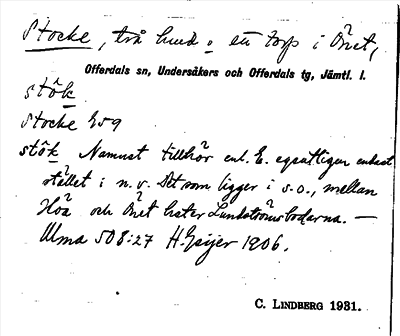 Stocke, två hmd o en torp i Önet,
Offerdals sn, Undersåkers och Offerdals tg, Jämtl. l.
stök
Stocke 859
stök Namnet tillhör enl. E. egentligen endast
stället i n.v. Det som ligger i s.o., mellan
Höa och Önet heter Lundströmsbodarna. —
Ulma 508:27 H. Geijer 1906.
C. LINDBERG 1931.